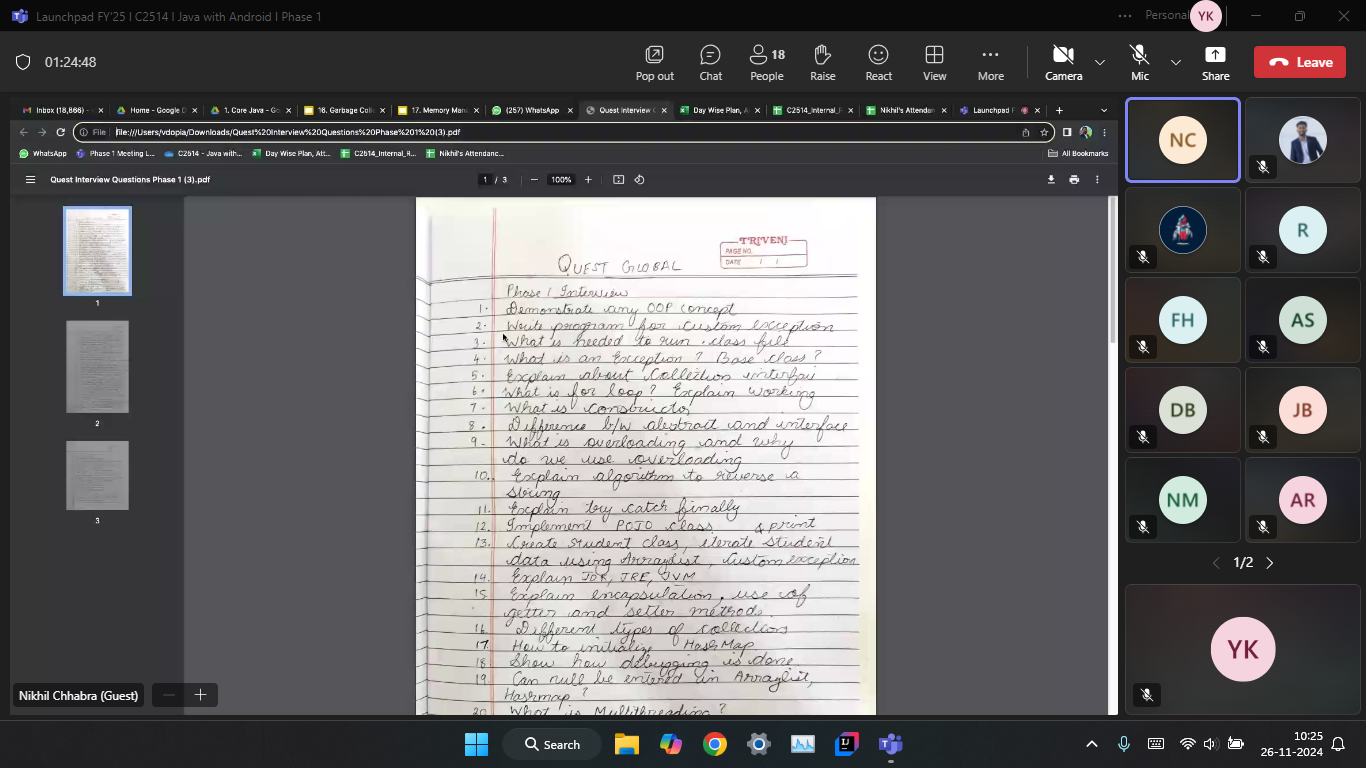 Launchpad FY'25 | C2514 | Java with Android | Phase 1
Personal
YK
01:24:48
Pop out
Chat
18
People
Raise
React
View
More
Camera
Mic
Share
Leave
Inbox (18,866) -
Home - Google D
1. Core Java - Go
16. Garbage Coll
17. Memory Man
(257) WhatsApp
Quest Interview
Day Wise Plan, A
C2514_Internal_F
Nikhil's Attendan
Launchpad F
File
file:///Users/vdopia/Downloads/Quest%20Interview%20Questions%20Phase%201%20(3).pdf
WhatsApp
Phase 1 Meeting L...
C2514 - Java with...
Day Wise Plan, Att...
C2514_Internal_R...
Nikhil's Attendanc...
All Bookmarks
Quest Interview Questions Phase 1 (3).pdf
1 / 3
100%
1
2
3
TRIVENI
PAGE NO.
DATE / /
QUEST GLOBAL
Phase 1 Interview
1. Demonstrate any OOP concept
2. Write program for custom exception
3. What is needed to run .class file
4. What is an Exception ? Base class ?
5. Explain about Collection interfai
6. What is for loop? Explain working
7. What is constructor
8. Difference b/w abstract and interface
9. What is overloading and why
do we use overloading
10. Explain algorithm to reverse a
string
11. Explain try catch finally
12. Implement POJO class & print
13. Create student class, iterate student
data using Arraylist, custom exception
14. Explain JDK, JRE, JVM
15. Explain encapsulation, use of
getter and setter methods.
16. Different types of collections
17. How to initialize HashMap
18. Show how debugging is done.
19. Can null be entered in Arraylist,
Hashmap ?
20. What is Multithreading ?
Nikhil Chhabra (Guest)
NC
R
FH
AS
DB
JB
NM
AR
1/2
YK
Search
10:25
26-11-2024